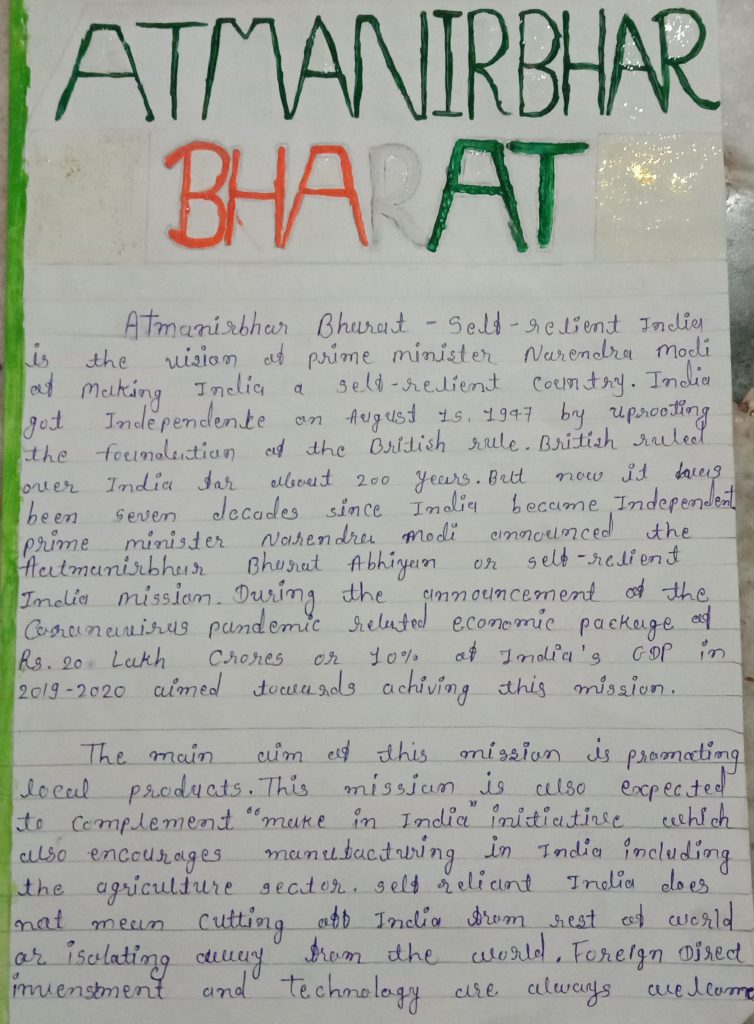 ATMANIRBHAR
BHARAT
Atmanirbhar Bharat - Self-relient India
is the vision of prime minister Narendra modi
of Making India a self-relient country. India
got Independente on August 15, 1947 by uprooting
the foundation of the British rule. British ruled
over India for about 200 years. But now it has
been seven decades since India became Independent
prime minister Narendra modi announced the
Aatmanirbhar Bharat Abhiyan or self-relient
India mission. During the announcement of the
Coronavirus pandemic related economic package of
Rs. 20 Lakh Crores or 10% of India's GDP in
2019-2020 aimed towards achiving this mission.
The main aim of this mission is promoting
local products. This mission is also expected
to complement "make in India" initiative which
also encourages manufacturing in India including
the agriculture sector. self reliant India does
not mean cutting off India from rest of world
or isolating away from the world. Foreign Direct
invenstment and technology are always welcome